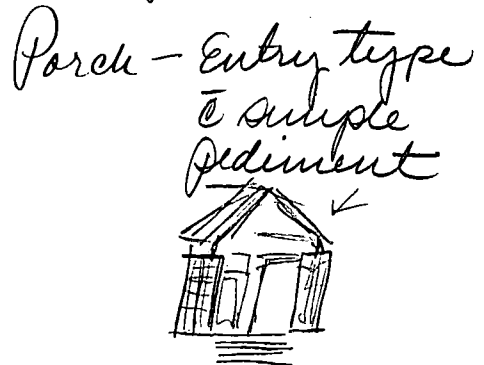 Porch – Entry type
c̄ simple
pediment